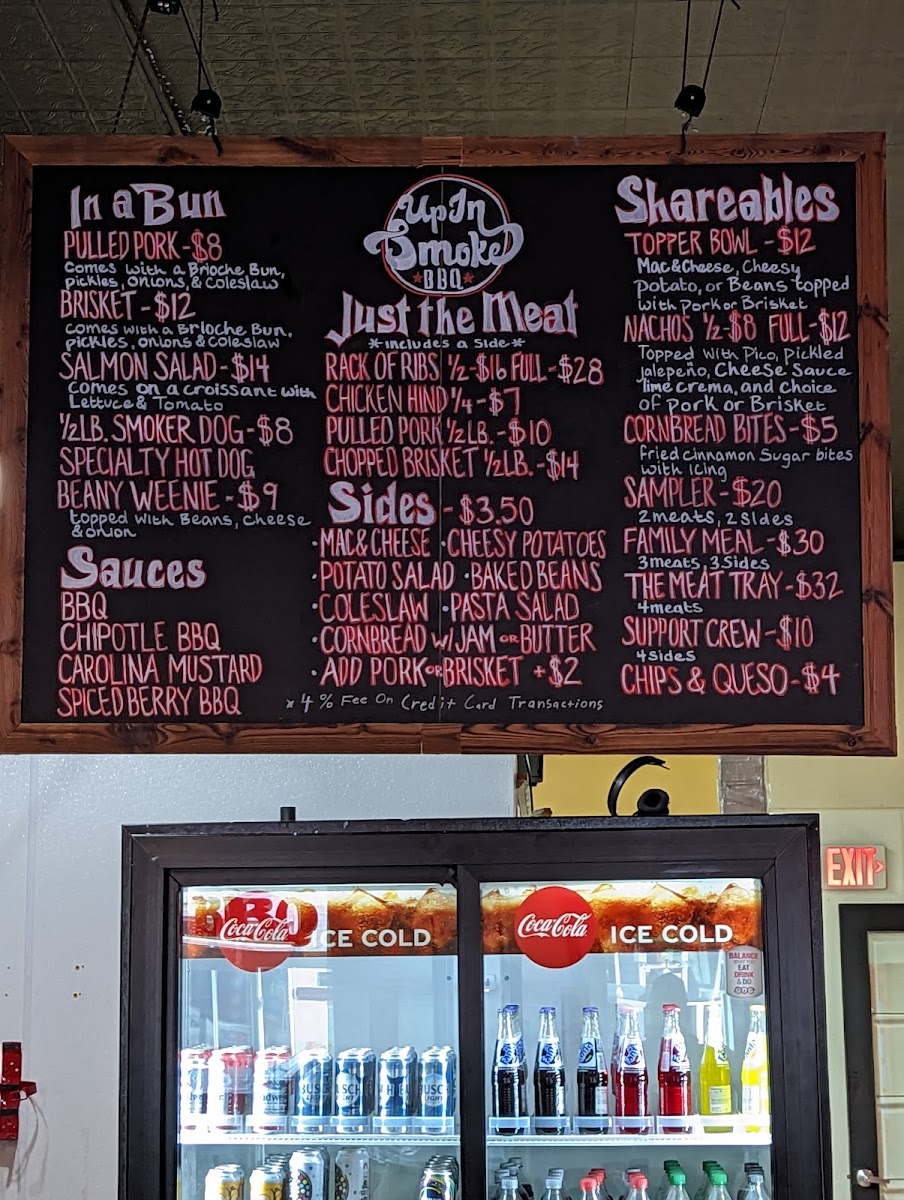 In a Bun
PULLED PORK - $8
Comes with a Brioche Bun,
pickles, onions, & Coleslaw
BRISKET - $12
Comes with a Brioche Bun,
pickles, onions & coleslaw
SALMON SALAD - $14
Comes on a croissant with
Lettuce & Tomato
1/2 LB. SMOKER DOG - $8
SPECIALTY HOT DOG
BEANY WEENIE - $9
topped with Beans, cheese
& onion
Sauces
BBQ
CHIPOTLE BBQ
CAROLINA MUSTARD
SPICED BERRY BBQ
Up In
Smoke
BBQ
Just the Meat
*includes a side*
RACK OF RIBS 1/2 - $16 FULL - $28
CHICKEN HIND 1/4 - $7
PULLED PORK 1/2 LB. - $10
CHOPPED BRISKET 1/2 LB. - $14
Sides - $3.50
· MAC & CHEESE · CHEESY POTATOES
· POTATO SALAD · BAKED BEANS
· COLESLAW · PASTA SALAD
· CORNBREAD w/ JAM OR BUTTER
· ADD PORK OR BRISKET + $2
* 4% Fee On Credit Card Transactions
Shareables
TOPPER BOWL - $12
Mac & Cheese, Cheesy
Potato, or Beans topped
with Pork or Brisket
NACHOS 1/2 - $8 FULL - $12
Topped with Pico, Pickled
jalepeño, Cheese Sauce
lime crema, and choice
Of Pork or Brisket
CORNBREAD BITES - $5
fried cinnamon Sugar bites
with icing
SAMPLER - $20
2 meats, 2 sides
FAMILY MEAL - $30
3 meats, 3 Sides
THE MEAT TRAY - $32
4 meats
SUPPORT CREW - $10
4 sides
CHIPS & QUESO - $4
EXIT
BBQ
Coca-Cola
ICE COLD
Coca-Cola
ICE COLD
BALANCE
WHAT YOU
EAT
DRINK
& DO